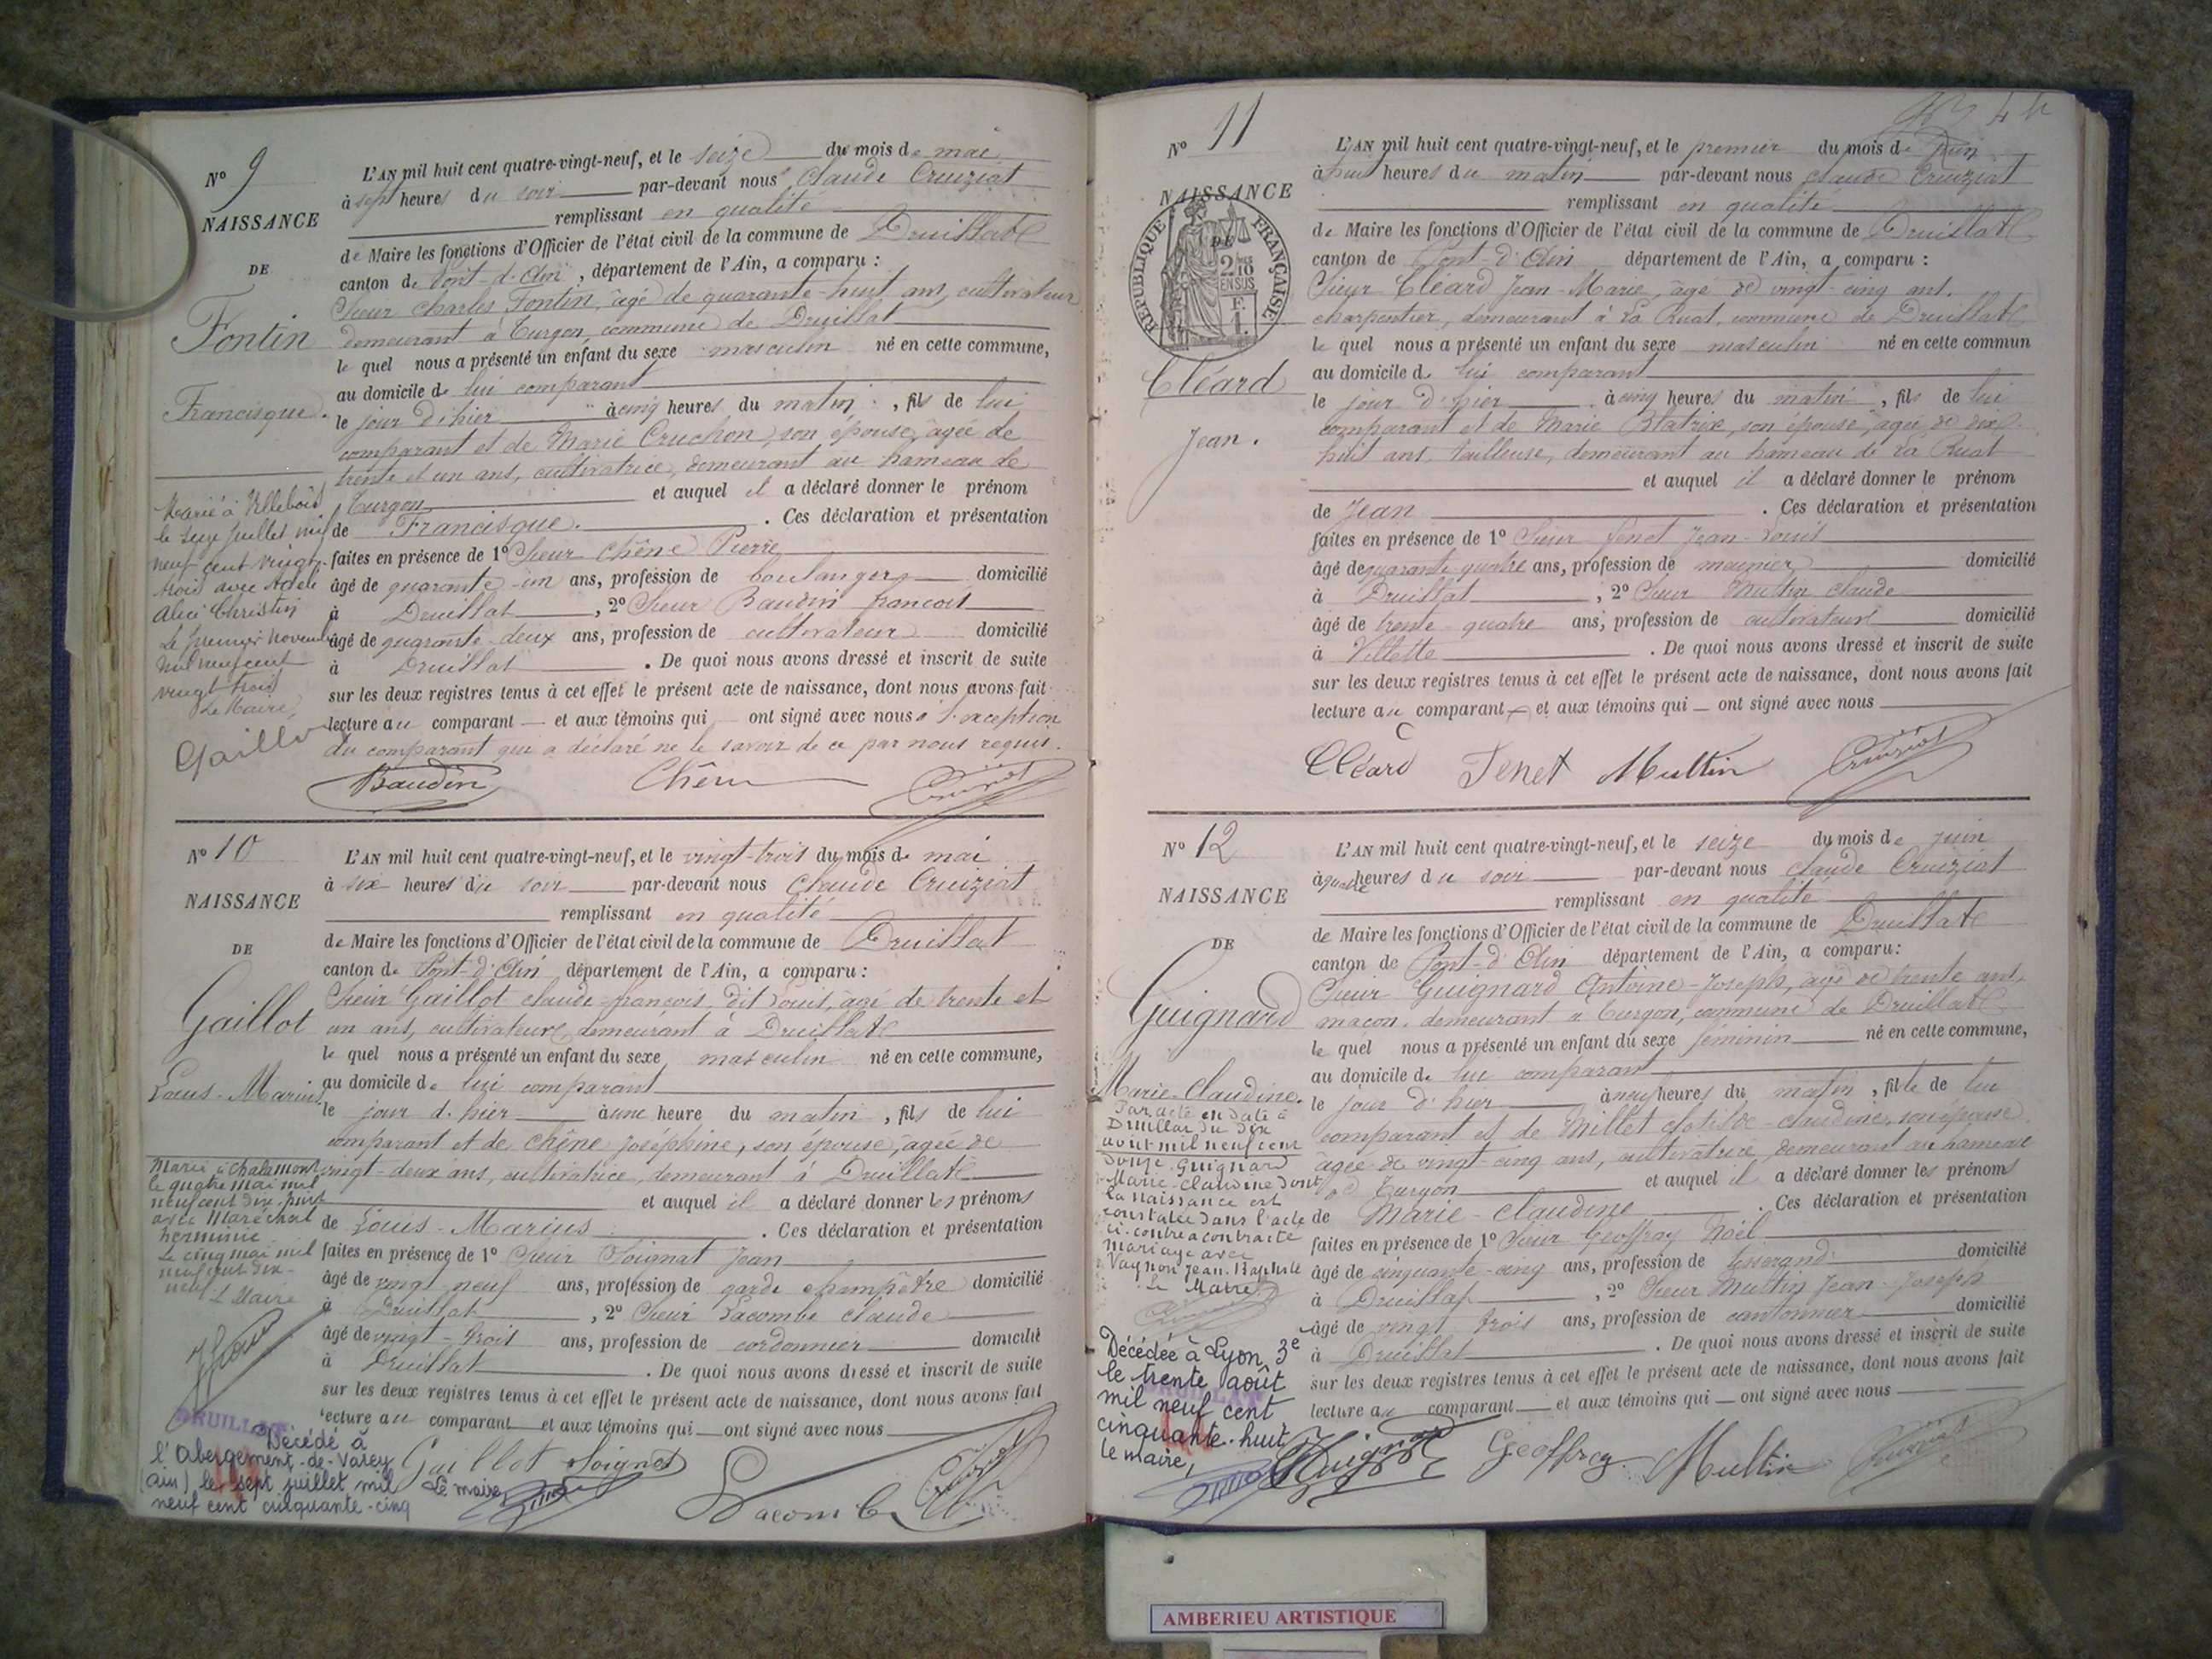 Nº 9
NAISSANCE
DE
Fontin
Francisque.
Marié à Villebois
le seize juillet mil
neuf cent vingt-
trois avec Adèle
Alice Christin
Le premier novembre
mil neuf cent
vingt trois
Le Maire,
Gaillot
L'AN mil huit cent quatre-vingt-neuf, et le seize du mois de mai
à sept heures du soir par-devant nous Claude Cruiziat
remplissant en qualité
de Maire les fonctions d'Officier de l'état civil de la commune de Druillat
canton de Pont-d'Ain, département de l'Ain, a comparu :
Sieur Charles Fontin, âgé de quarante-huit ans, cultivateur
demeurant à Turgon, commune de Druillat
le quel nous a présenté un enfant du sexe masculin né en cette commune,
au domicile de lui comparant
le jour d'hier à cinq heures du matin, fils de lui
comparant et de Marie Cruchon, son épouse, âgée de
trente et un ans, cultivatrice, demeurant au hameau de
Turgon et auquel il a déclaré donner le prénom
de Francisque. . Ces déclaration et présentation
faites en présence de 1º Sieur Chêne Pierre
âgé de quarante-un ans, profession de boulanger domicilié
à Druillat, 2º Sieur Baudin françois
âgé de quarante-deux ans, profession de cultivateur domicilié
à Druillat . De quoi nous avons dressé et inscrit de suite
sur les deux registres tenus à cet effet le présent acte de naissance, dont nous avons fait
lecture au comparant et aux témoins qui ont signé avec nous à l'exception
du comparant qui a déclaré ne le savoir de ce par nous requis.
Baudin Chêne Cruiziat
Nº 10
NAISSANCE
DE
Gaillot
Louis-Marius
Marié à Chalamont
le quatre mai mil
neuf cent dix-huit
avec Maréchal
herminie
Le cinq mai mil
neuf cent dix-
neuf L Maire
DRUILLAT
Décédé à
l'Abergement-de-Varey
(ain) le sept juillet mil
neuf cent cinquante-cinq
Le maire,
L'AN mil huit cent quatre-vingt-neuf, et le vingt-trois du mois de mai
à six heures du soir par-devant nous Claude Cruiziat
remplissant en qualité
de Maire les fonctions d'Officier de l'état civil de la commune de Druillat
canton de Pont-d'Ain département de l'Ain, a comparu :
Sieur Gaillot claude-françois, dit Louis, âgé de trente et
un ans, cultivateur, demeurant à Druillat
le quel nous a présenté un enfant du sexe masculin né en cette commune,
au domicile de lui comparant
le jour d'hier à une heure du matin, fils de lui
comparant et de Chêne Joséphine, son épouse, âgée de
vingt-deux ans, cultivatrice, demeurant à Druillat
et auquel il a déclaré donner les prénoms
de Louis-Marius . Ces déclaration et présentation
faites en présence de 1º Sieur Soignat Jean
âgé de vingt neuf ans, profession de garde champêtre domicilié
à Druillat, 2º Sieur Lacombe claude
âgé de vingt-trois ans, profession de cordonnier domicilié
à Druillat . De quoi nous avons dressé et inscrit de suite
sur les deux registres tenus à cet effet le présent acte de naissance, dont nous avons fait
lecture au comparant et aux témoins qui ont signé avec nous
Gaillot Soignat Lacombe Cruiziat
Nº 11
NAISSANCE
DE
RÉPUBLIQUE FRANÇAISE
2/10 EN SUS
Cléard
Jean.
L'AN mil huit cent quatre-vingt-neuf, et le premier du mois de Juin
à huit heures du matin par-devant nous claude Cruiziat
remplissant en qualité
de Maire les fonctions d'Officier de l'état civil de la commune de Druillat
canton de Pont-d'Ain département de l'Ain, a comparu :
Sieur Cléard Jean-Marie, âgé de vingt-cinq ans.
charpentier, demeurant à La Ruat, commune de Druillat
le quel nous a présenté un enfant du sexe masculin né en cette commun
au domicile de lui comparant
le jour d'hier à cinq heures du matin, fils de lui
comparant et de Marie Blatrix, son épouse, âgée de dix-
huit ans, tailleuse, demeurant au hameau de La Ruat
et auquel il a déclaré donner le prénom
de Jean . Ces déclaration et présentation
faites en présence de 1º Sieur Tenet Jean-Louis
âgé de quarante quatre ans, profession de meunier domicilié
à Druillat, 2º Sieur Multin claude
âgé de trente-quatre ans, profession de cultivateur domicilié
à Villette . De quoi nous avons dressé et inscrit de suite
sur les deux registres tenus à cet effet le présent acte de naissance, dont nous avons fait
lecture au comparant et aux témoins qui ont signé avec nous
Cléard Tenet Multin Cruiziat
Nº 12
NAISSANCE
DE
Guignard
Marie-Claudine.
Par acte en date à
Druillat du dix
août mil neuf cent
douze Guignard
Marie-Claudine dont
la naissance est
constatée dans l'acte
ci-contre a contracté
mariage avec
Vagnon Jean-Baptiste
Le Maire
Décédée à Lyon 3e
le trente août
mil neuf cent
cinquante-huit
Le maire,
L'AN mil huit cent quatre-vingt-neuf, et le seize du mois de Juin
à quatre heures du soir par-devant nous claude Cruiziat
remplissant en qualité
de Maire les fonctions d'Officier de l'état civil de la commune de Druillat
canton de Pont-d'Ain département de l'Ain, a comparu:
Sieur Guignard Antoine-Joseph, âgé de trente ans,
maçon, demeurant à Turgon, commune de Druillat
le quel nous a présenté un enfant du sexe féminin né en cette commune,
au domicile de lui comparant
le jour d'hier à neuf heures du matin, fille de lui
comparant et de Millet clotilde-claudine, son épouse
âgée de vingt-cinq ans, cultivatrice demeurant au hameau
de Turgon et auquel il a déclaré donner les prénoms
de Marie-Claudine . Ces déclaration et présentation
faites en présence de 1º Sieur Geoffray Noël
âgé de cinquante-cinq ans, profession de tisserand domicilié
à Druillat, 2º Sieur Multin Jean-Joseph
âgé de vingt trois ans, profession de cantonnier domicilié
à Druillat . De quoi nous avons dressé et inscrit de suite
sur les deux registres tenus à cet effet le présent acte de naissance, dont nous avons fait
lecture au comparant et aux témoins qui ont signé avec nous
Guignard Geoffray Multin Cruiziat
AMBERIEU ARTISTIQUE